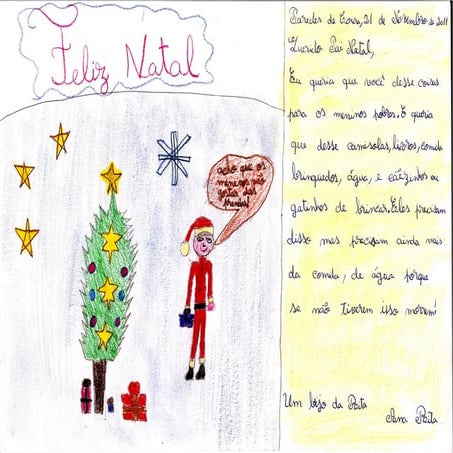 Feliz Natal
acho que os
meninos vão
gostar das
prendas!
Paredes de Coura, 21 de Novembro de 2011
Querido Pai Natal,
Eu queria que você desse coisas
para os meninos pobres. E queria
que desse camisolas, livros, comida
brinquedos, água, e cãezinhos ou
gatinhos de brincar. Eles precisam
disso mas precisam ainda mais
da comida, de água porque
se não tiverem isso morrem!
Um beijo da Rita
Ana Rita